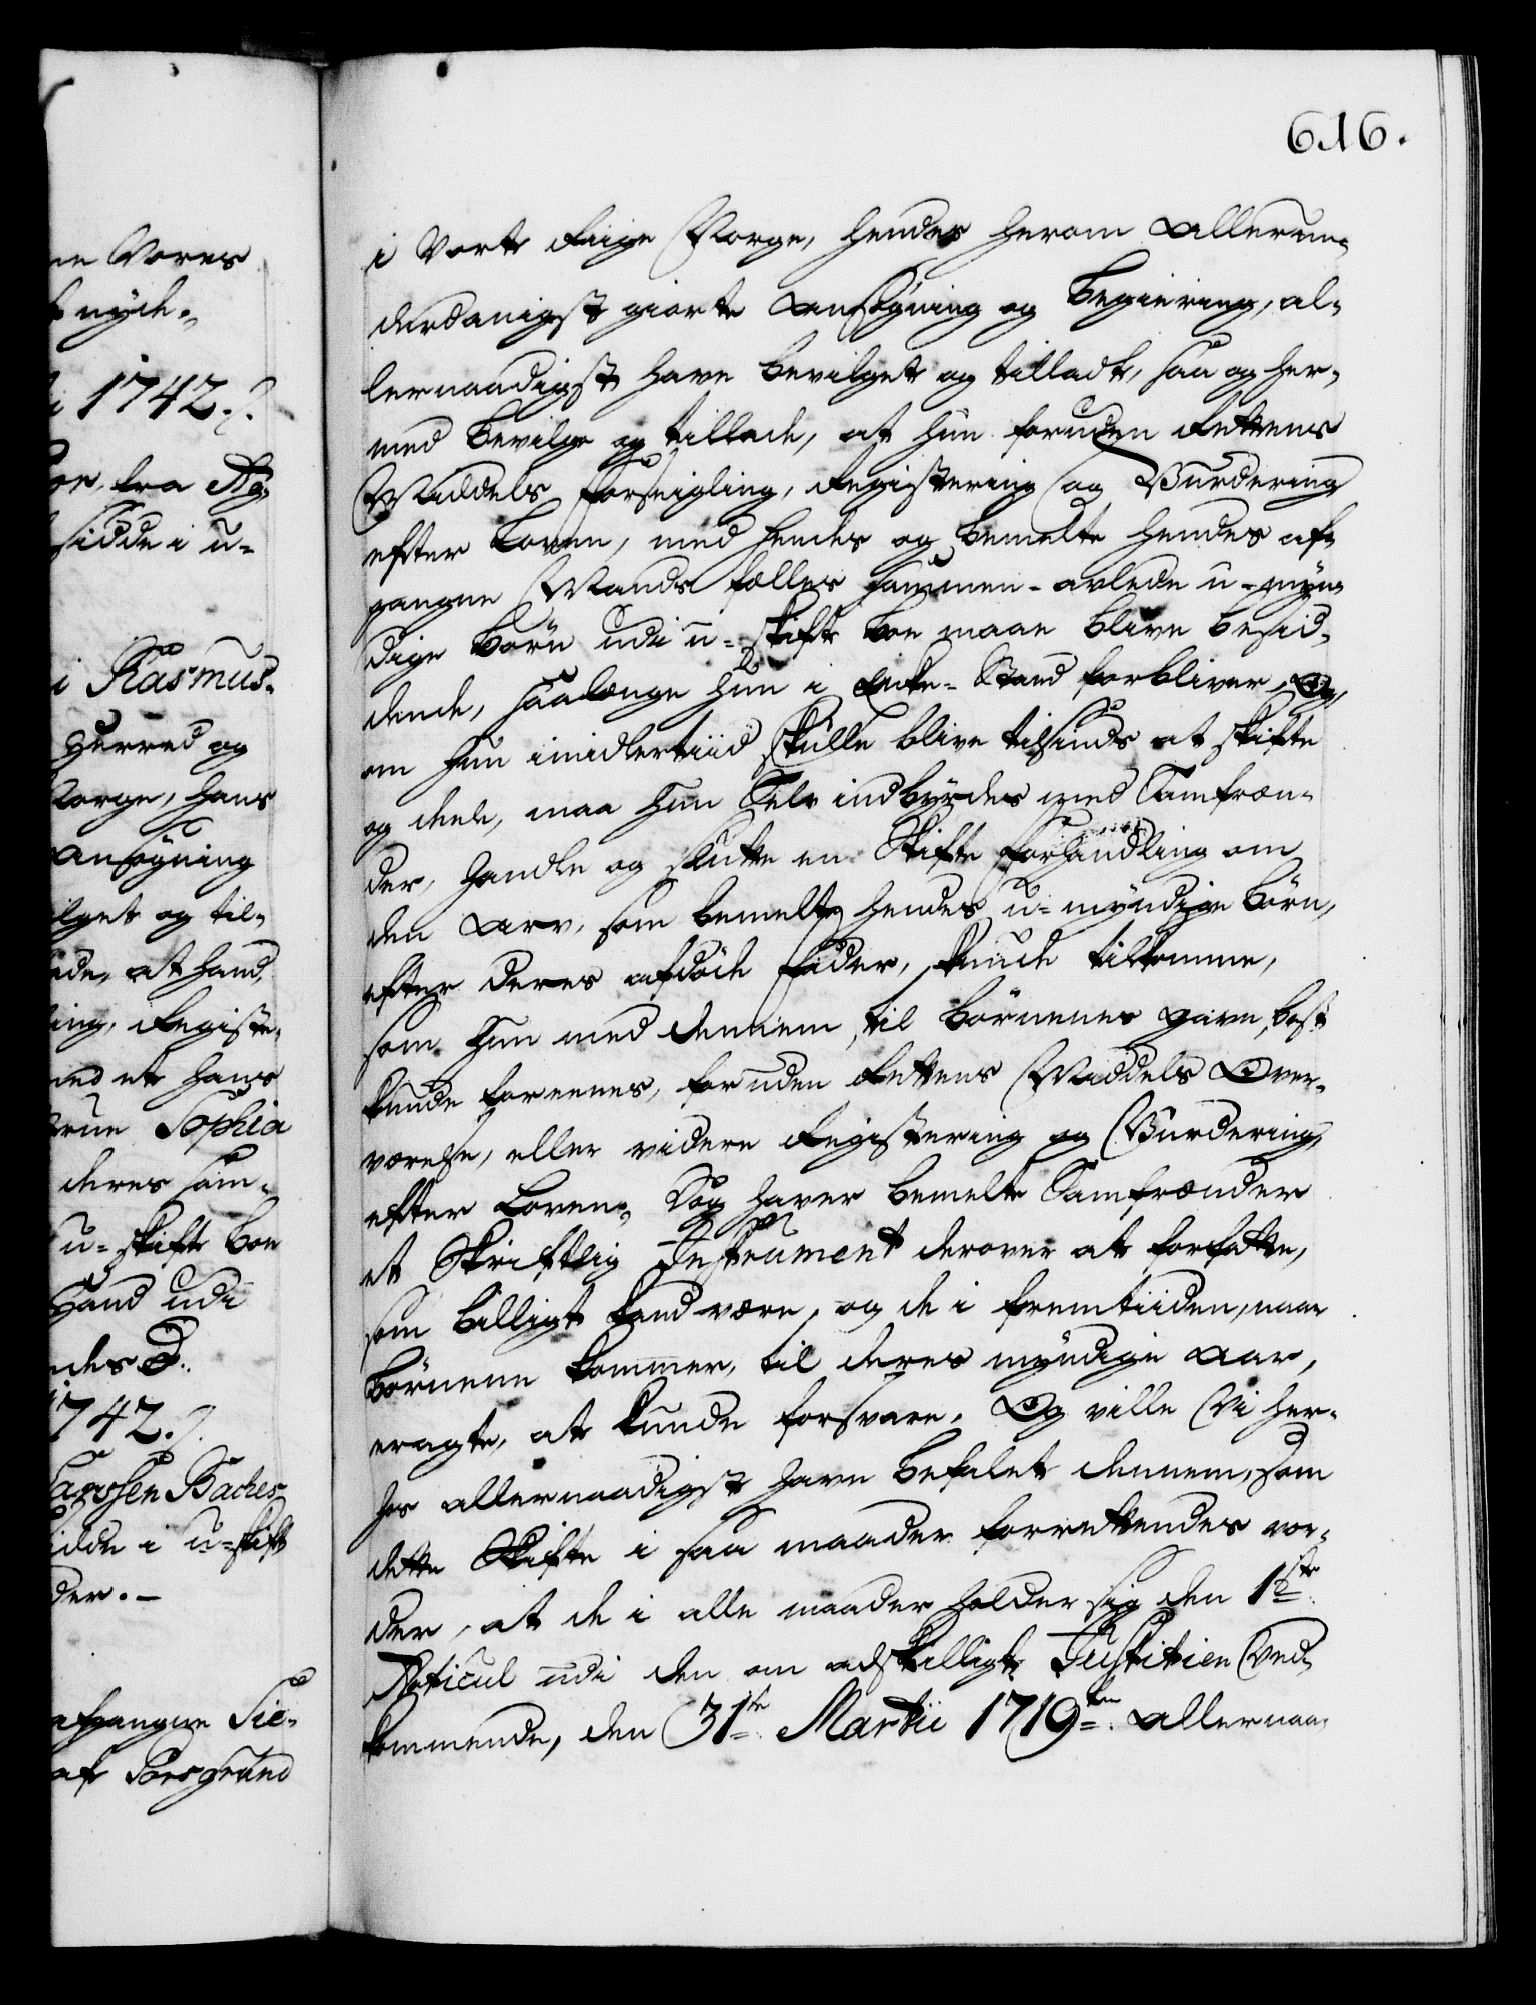 616.
en Vores
nyde.
i 1742.
or, fra Ag-
sidde i u-
i Rasmus-
Herred og
Norge, hans
ansøgning
ilget og til-
ade, at hand,
ing, Registe-
med et hans
true Sophia
deres sam-
u-skifte boe
Hand udi
ndes D:
1742.
Larssen Baches
sidde i u-skift
der.
afgangne Sie-
af Porsgrund
i Vort Rige Norge, hendes herom allerun-
derdanigst giorte Ansøgning og Begiering, al-
lernaadigst have bevilget og tilladt, saa og her-
med bevilge og tillade, at hun foruden Rettens
Middels Forseigling, Registering og Vurdering
efter Loven, med hendes og bemelte hendes af-
gangne Mands fælles sammen-avlede u-myn-
dige Børn udi u-skifte boe maae blive besid-
dende, saalænge hun i Enke-Stand forbliver. Og,
om hun imidlertiid skulle blive tilsinds at skifte
og deele, maa hun Selv indbyrdes med Samfræn-
der, handle og slutte en Skifte Forhandling om
den Arv, som bemelte hendes u-myndige Børn,
efter deres afdøde Fader, kunde tilkomme,
som hun med dennem, til Børnenes gavn, best
kunde foreenes, foruden Rettens Middels Over-
værelse, eller videre Registering og Vurdering,
efter Loven, Dog haver bemelte Samfrænder
et Skriftlig Instrument derover at forfatte,
som billigt kand være, og de i fremtiiden, naar
Børnene kommer, til deres myndige Aar,
eragte, at kunde forsvare. Og ville Vi her-
hos allernaadigst have befalet dennem, som
dette Skifte i saa maader forrettendes vor-
der, at de i alle maader holder sig den 1ste
Articul udi den om adskilligt Justitien Ved-
kommende, den 31te Martii 1719ten allernaa-